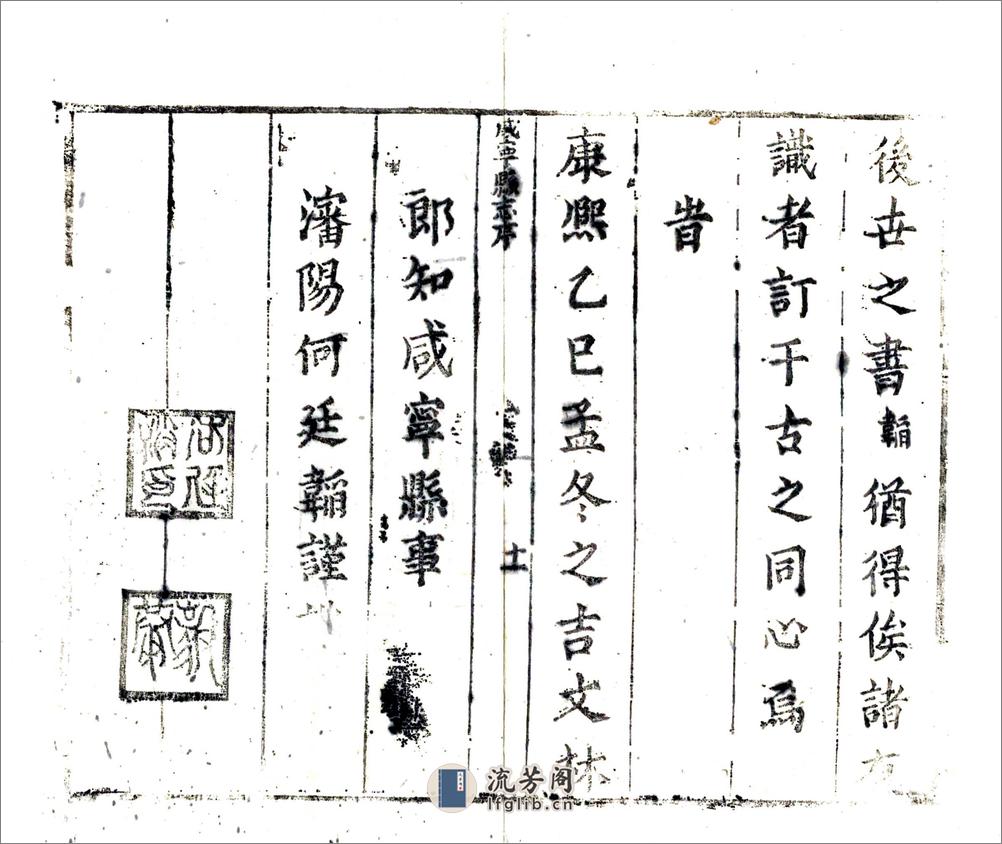 後世之書韜猶得俟諸有
識者訂千古之同心焉
旹
康熈乙巳孟冬之吉文林
咸寧縣志序
十一
郎知咸寧縣事
瀋陽何廷韜謹
流芳阁
lfglib.cn